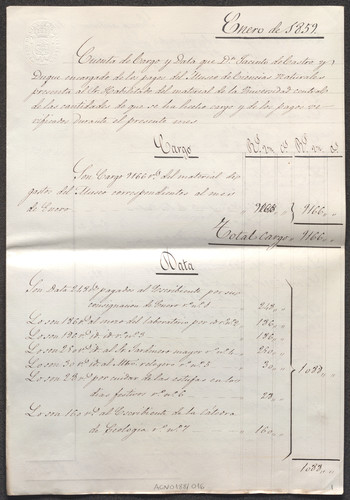 Enero de 1859
Cuenta de Cargo y Data que Dn. Jacinto de Castro y
Duque encargado de los pagos del Museo de Ciencias Naturales
presenta al Sr. Habilitado del material de la Universidad central
de las cantidades de que se ha hecho cargo y de los pagos ve-
rificados durante el presente mes
Cargo Rs. vn. Cs. Rs. vn. Cs.
Son Cargo 9166 rs. del material de gas-
gastos del Museo correspondientes al mes
de Enero 9166 ,, 9166 ,,
Total cargo 9166 ,,
Data
Son Data 248 pagados al Escribiente por su
consignacion de Enero no. 1 248 ,,
Lo son 186 al mozo del laboratorio por id no. 2 186 ,,
Lo son id no. 3 186 ,,
Lo son 250 id al Sr. Jardinero mayor no. 4 250 ,,
Lo son 30 rs. al relojero no. 5 30 ,,
Lo son por cuidar de las estufas en los
dias festivos no. 6
Lo son 160 rs. al Escribiente de la Cátedra
de Geologia no. 7 160 ,,
ACN0188/016